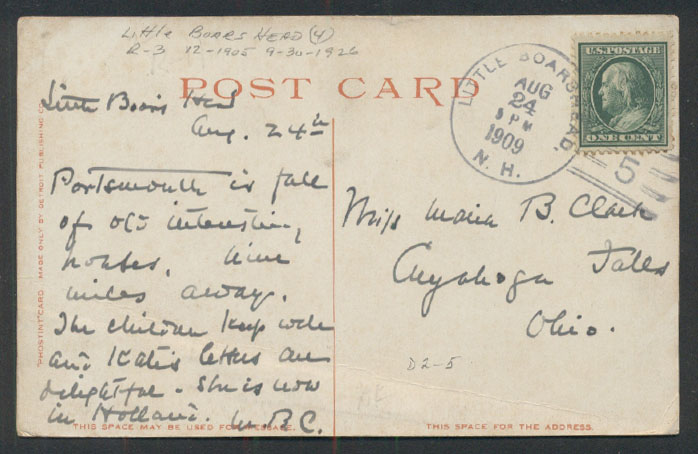 Little Boars Head (4)
R-3 12-1905 9-30-1926
POST CARD
U.S. POSTAGE
ONE CENT
LITTLE BOARS HEAD,
AUG
24
PM
1909
N. H.
5
Little Boar's Head
Aug. 24th
Portsmouth is full
of old interesting
houses, nine
miles away.
The children keep well
and Katie's letters are
delightful. She is now
in Holland. M.B.C.
Miss Maria B. Clark
Cuyahoga Falls
Ohio.
D2-5
PHOSTINT CARD MADE ONLY BY DETROIT PUBLISHING CO.
THIS SPACE MAY BE USED FOR MESSAGE.
THIS SPACE FOR THE ADDRESS.